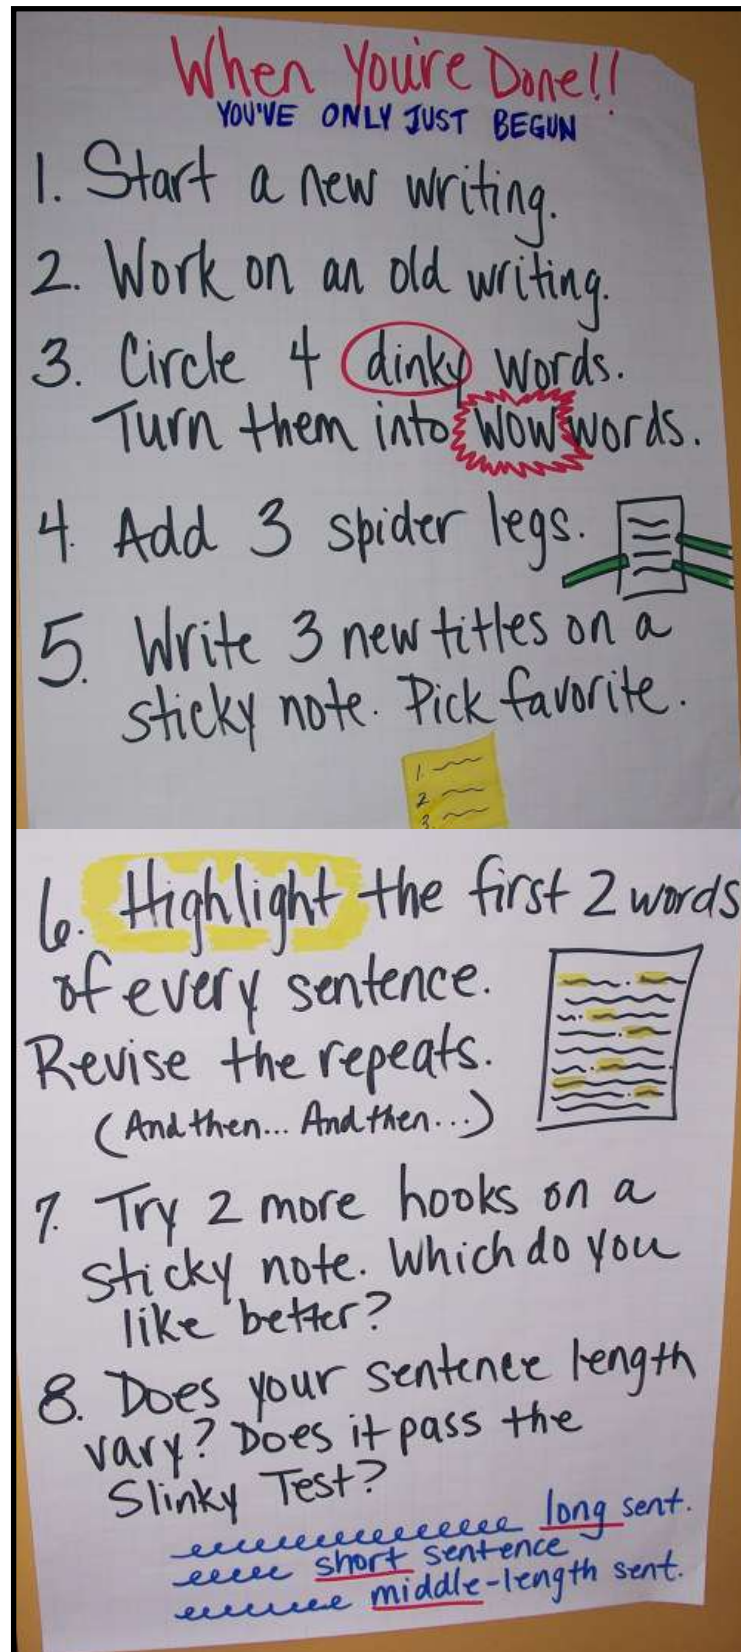 When You're Done!!
YOU'VE ONLY JUST BEGUN
1. Start a new writing.
2. Work on an old writing.
3. Circle 4 dinky words.
Turn them into WOW words.
4. Add 3 spider legs.
5. Write 3 new titles on a
sticky note. Pick favorite.
1.
2.
3.
6. Highlight the first 2 words
of every sentence.
Revise the repeats.
(And then... And then...)
7. Try 2 more hooks on a
sticky note. Which do you
like better?
8. Does your sentence length
vary? Does it pass the
Slinky Test?
long sent.
short sentence
middle-length sent.